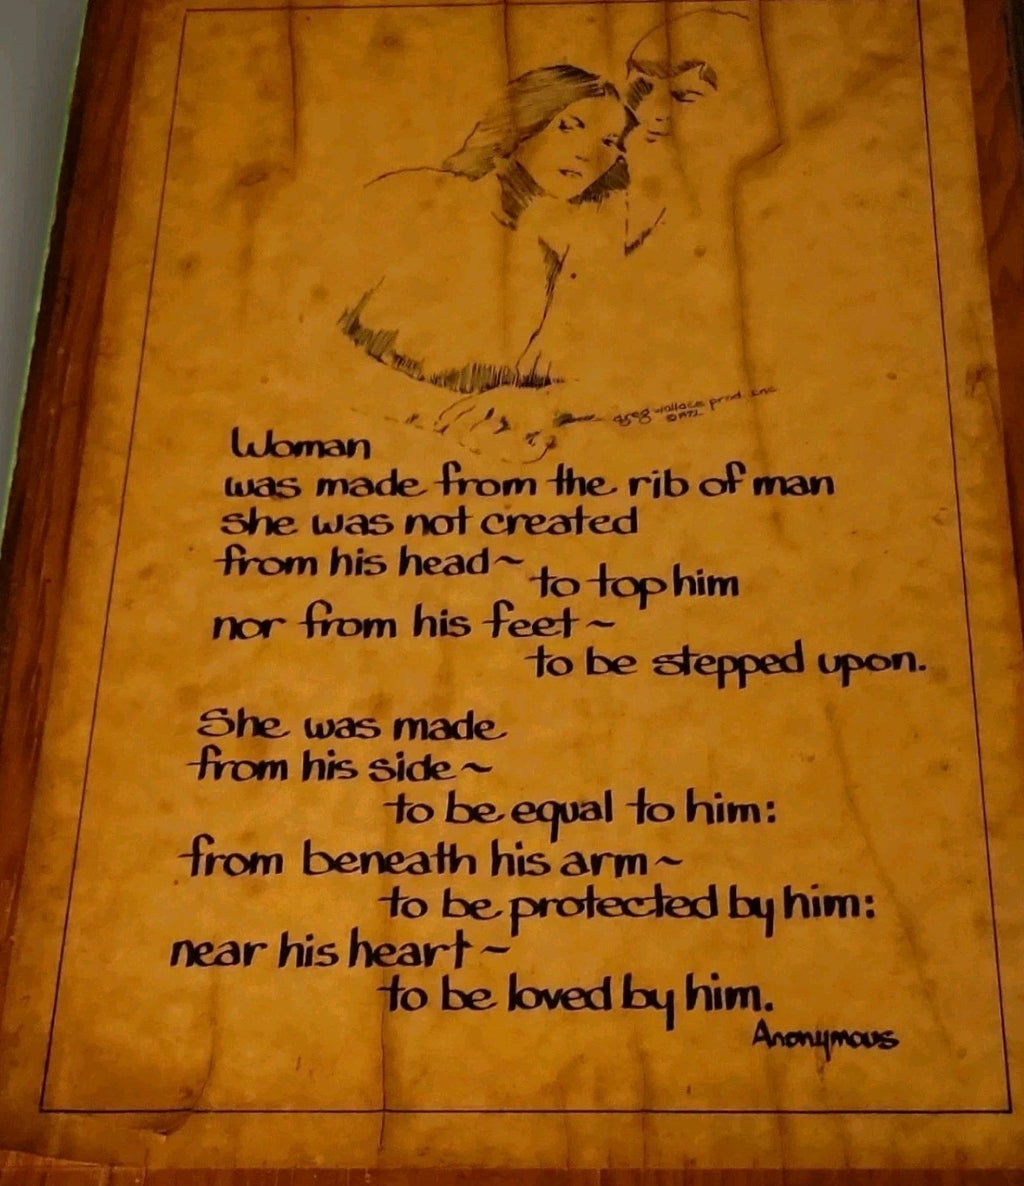 greg wallace prod inc
©1972
Woman
was made from the rib of man
she was not created
from his head~ to top him
nor from his feet~
to be stepped upon.
She was made
from his side~
to be equal to him:
from beneath his arm~
to be protected by him:
near his heart~
to be loved by him.
Anonymous